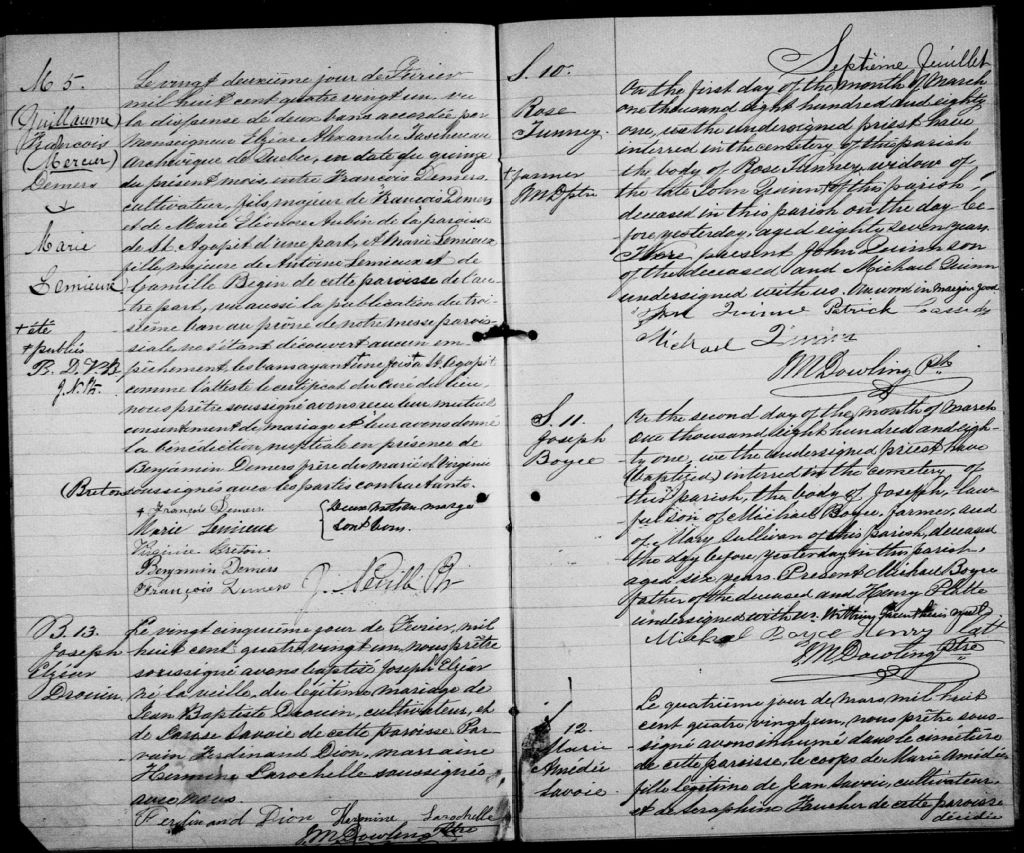 M 5.
(Guillaume)
François
(Mercier)
Demers
&
Marie
Lemieux
+ été
+ publiés
B. D. V B
J. N. Ptr.
Le vingt deuxième jour de Février
mil huit cent quatre vingt un vu
la dispense de deux bans accordée par
Monseigneur Elzéar Alexandre Taschereau
Archevêque de Québec, en date du quinze
du présent mois, entre François Demers
cultivateur, fils majeur de François Demers
et de Marie Aubin de la paroisse
de St. Agapit d'une part, et Marie Lemieux
fille majeure de Antoine Lemieux et de
Camille Begin de cette paroisse de l'au-
tre part, vu aussi la publication du troi-
sième ban au prône de notre messe parois-
siale, ne s'étant découvert aucun em-
pêchement, les bans ayant + une fois + à St. Agapit
comme l'atteste le certificat du Curé du lieu,
nous prêtre soussigné avons reçu leur mutuel
consentement de mariage et leur avons donné
la bénédiction nuptiale en présence de
Benjamin Demers frère du marié et Virginie
(Breton soussignés avec les parties contractants.
+ Francois Demers
Marie Lemieux
Virginie Breton
Benjamin Demers
François Demers
{Deux mots en marge
sont bons.
J. Neville Ptr
B. 13.
Joseph
Elzéar
Drouin.
Le vingt cinquième jour de Février, mil
huit cent quatre vingt un, nous prêtre
soussigné avons baptisé Joseph Elzéar
né la veille, du légitime mariage de
Jean Baptiste Drouin, cultivateur, et
de Savoie de cette paroisse. Par-
rain Ferdinand Dion, marraine
Hermine Larochelle soussignés
avec nous.
Ferdinand Dion Hermine Larochelle
JM Dowling Ptre
Septième Feuillet
S. 10.
Rose
Tunney.
+ farmer
JMD ptr
On the first day of the month of March
one thousand eight hundred and eighty
one, we the undersigned priest have
interred in the cemetery of this parish
the body of Rose Tunney, widow of
the late John Quinn + of this parish
deceased in this parish on the day be-
fore yesterday, aged eighty seven years.
Were present John Quinn son
of the deceased and Michael Quinn
undersigned with us. One word in margin good
John Quinn Patrick Cassidy
Michael Quinn
JM Dowling Ptr
S. 11.
Joseph
Boyce
On the second day of the month of March
one thousand eight hundred and eigh-
ty one, we the undersigned priest have
(baptized) interred in the cemetery of
this parish, the body of Joseph, law-
ful son of Michael Boyce, farmer, and
of Mary Sullivan of this parish, deceased
the day before yesterday in this parish,
aged six years. Present Michael Boyce
father of the deceased and Henry Platte
undersigned with us.
Michael Boyce Henry Platt
JM Dowling Ptre
S. 12.
Marie
Amédée
Savoie.
Le quatrième jour de mars, mil huit
cent quatre vingt un, nous prêtre sous-
signé avons inhumé dans le cimetière
de cette paroisse, le corps de Marie Amédée
fille légitime de Jean Savoie, cultivateur,
et de Séraphine Faucher de cette paroisse
décédée